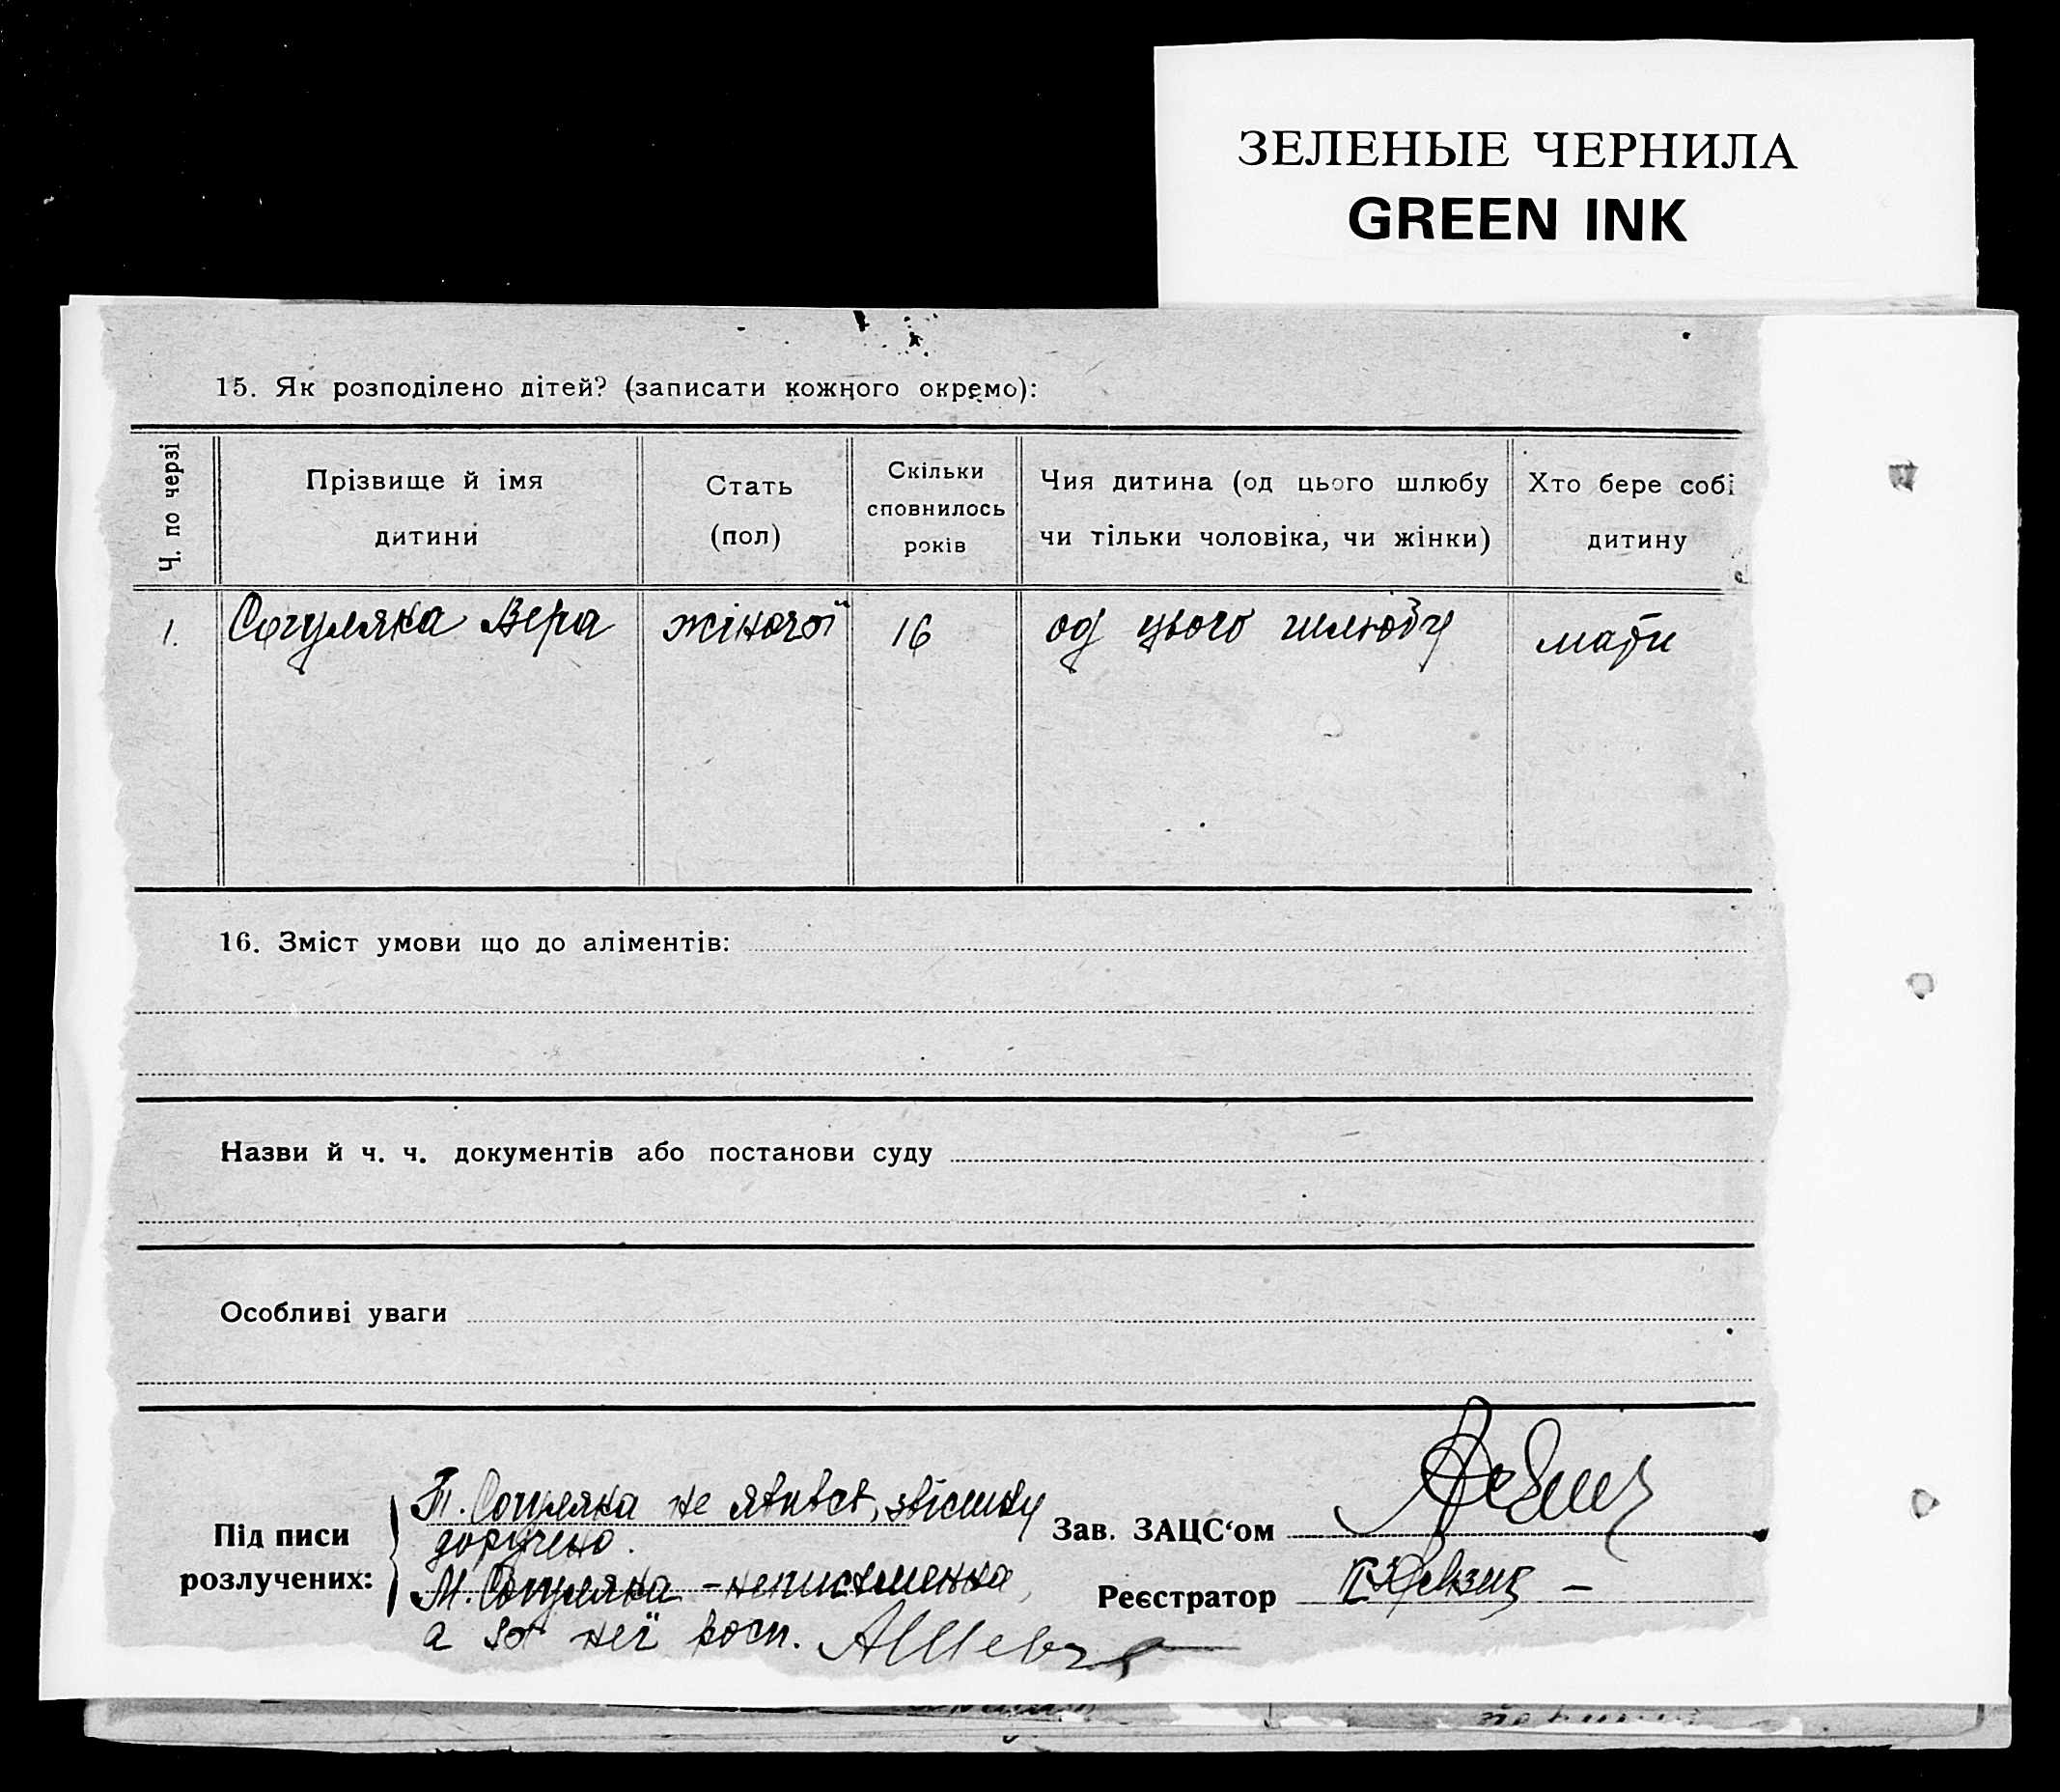 ЗЕЛЕНЫЕ ЧЕРНИЛА
GREEN INK
15. Як розподілено дітей? (записати кожного окремо):
Ч. по черзі
Прізвище й імя дитини
Стать (пол)
Скільки сповнилось років
Чия дитина (од цього шлюбу чи тільки чоловіка, чи жінки)
Хто бере собі дитину
1. Согуляка Вера жіночої 16 од цього шлюбу мати
16. Зміст умови що до аліментів:
Назви й ч. ч. документів або постанови суду
Особливі уваги
Під писи розлучених:
Т. Согуляка не явивсь, звістку
доручено.
М. Согуляка - неписьменна
а за неї розп.
Зав. ЗАЦС‘ом
Реєстратор